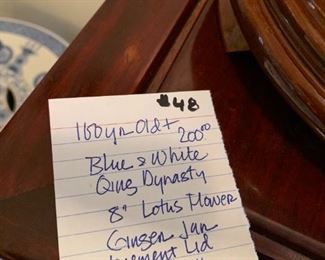 #48
150 yr Old +
200.00
Blue & White
Qing Dynasty
8" Lotus Flower
Ginger Jar
Lid